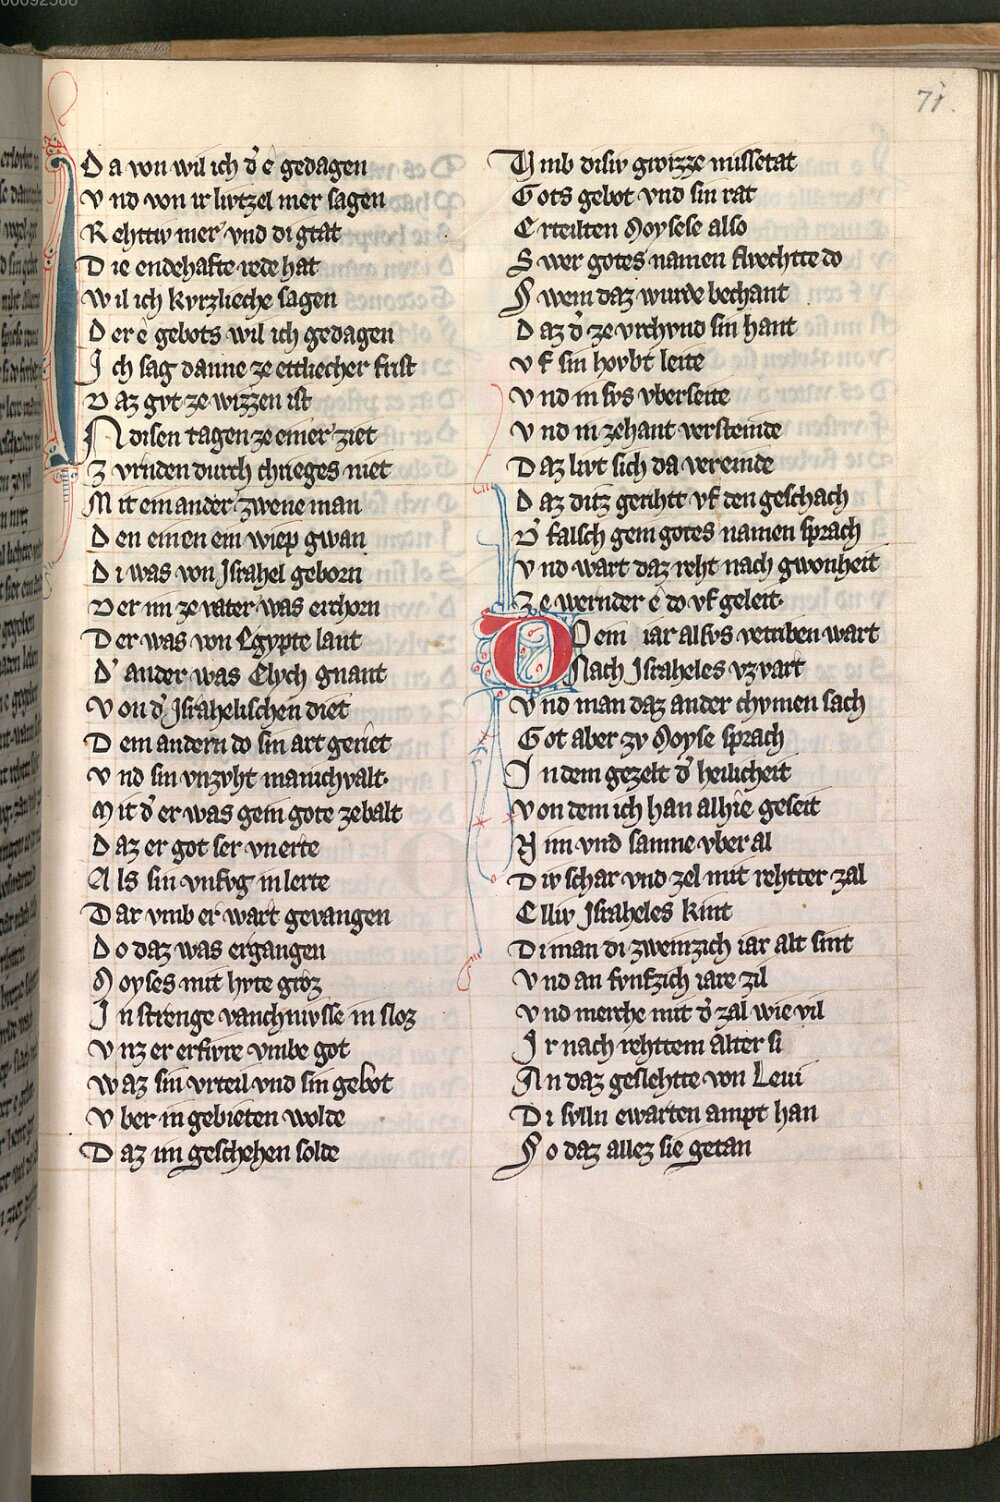 71.
Da von wil ich d' e gedagen
Vnd von ir lvtzel mer sagen
Rehttiv mer vnd di gtat
Die endehafte rede hat
Wil ich kvrzlieche sagen
Der e gebots wil ich gedagen
Ich sag danne ze ettliecher frist
Daz gvt ze wizzen ist
In disen tagen ze einer ziet
Zvrnden durch chrieges niet
Mit ein ander zwene man
Den einen ein wiep gwan
Di was von Israhel geborn
Der im ze vater was erchorn
Der was von Egypte lant
D' ander was Elych gnant
Von d' Israhelischen diet
Dem andern do sin art geriet
Vnd sin vnzvht manichvalt.
Mit d' er was gein gote ze balt
Daz er got ser vnerte
Als sin vnfvg in lerte
Dar vmb er wart gevangen
Do daz was ergangen
Moyses mit hvte groz
In strenge vanchnvsse in sloz
Vnz er erfvre vmbe got
Waz sin vrteil vnd sin gebot
Vber in gebieten wolde
Daz im geschehen solde
Vmb disiv grozze missetat
Gots gebot vnd sin rat
Erteilten Moysese also
Swer gotes namen flvechtte do
Swem daz wurde bechant
Daz d' ze vrchvnd sin hant
Vf sin hovbt leite
Vnd in svs vberseite
Vnd in zehant versteinde
Daz livt sich da vereinde
Daz ditz geriht vf den geschach
D' falsch gein gotes namen sprach
Vnd wart daz reht nach gwonheit
Ze wernder e do vf geleit.
Dem iar alsvs vertriben wart
Nach Israheles vz vart
Vnd man daz ander chvmen sach
Got aber zv Moyse sprach
In dem gezelt d' heilicheit
Von dem ich han alhie geseit
Nim vnd samne vber al
Div schar vnd zel mit rehtter zal
Elliv Israheles kint
Di man di zweinzich iar alt sint
Vnd an fvnfzich iare zil
Vnd merche mit d' zal wie vil
Ir nach rehttem alter si
An daz geslehtte von Leui
Di svlln ewarten ampt han
So daz allez sie getan